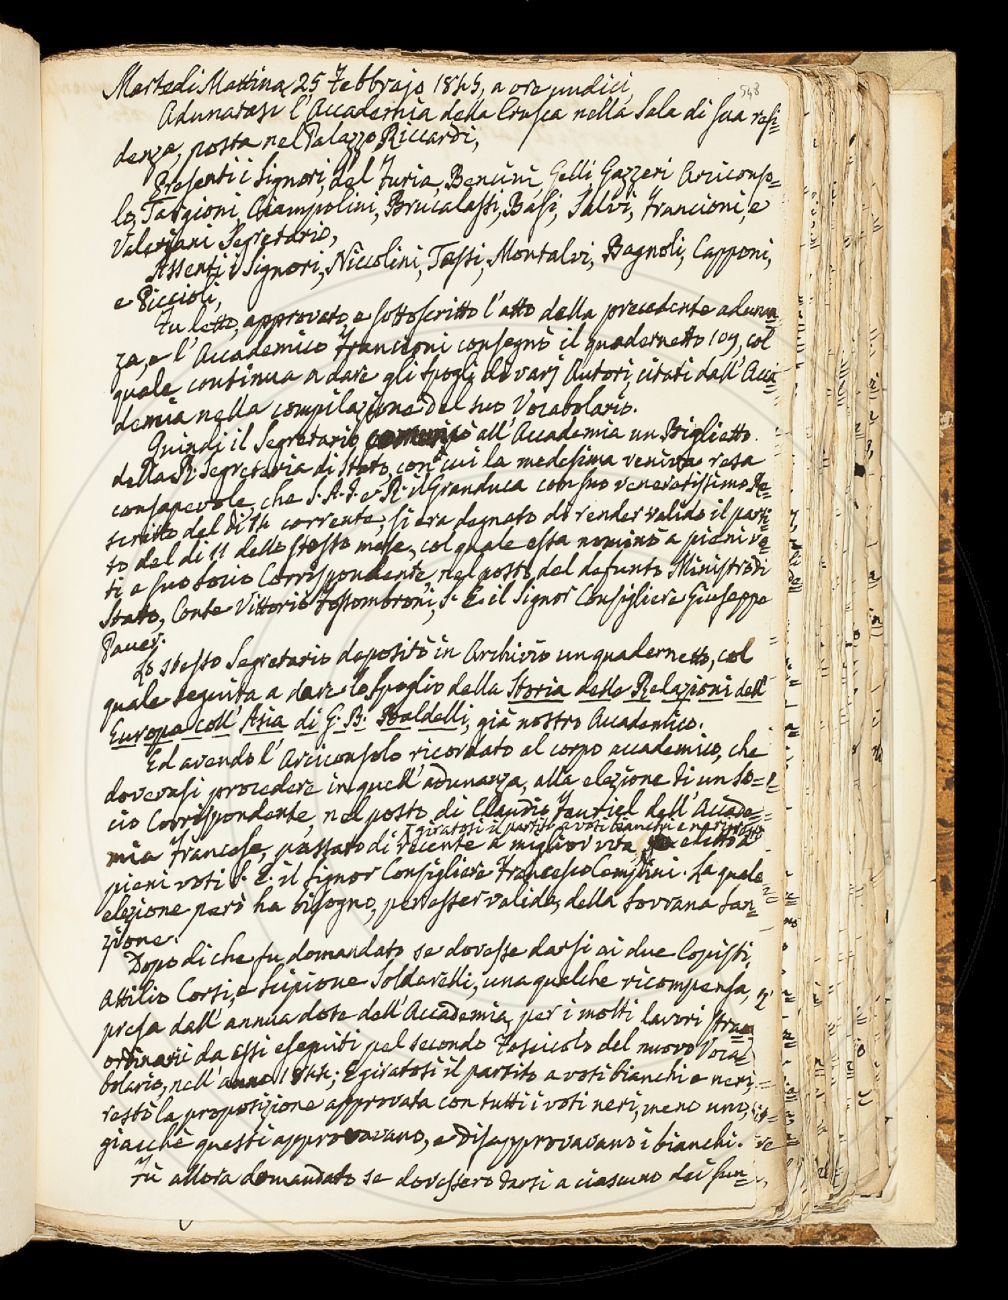 548
Martedi Mattina 25 Febbrajo 1845, a ore undici,
Adunatasi l'Accademia della Crusca nella Sala di sua resi=
denza, posta nel Palazzo Riccardi,
Presenti i Signori, del Furia, Bencini, Gelli, Gazzeri Arciconso=
lo, Targioni, Ciampolini, Brucalassi, Basi, Salvi, Francioni, e
Valeriani Segretario,
Assenti i Signori, Niccolini, Tassi, Montalvi, Bagnoli, Capponi,
e Piccioli,
Fu letto, approvato, e sottoscritto l'atto della precedente adunan=
za, e l'Accademico Francioni consegnò il quadernetto 109, col
quale continua a dare gli spogli di varj Autori, citati dall'Acca=
demia nella compilazione del suo Vocabolario.
Quindi il Segretario comunicò all'Accademia un Biglietto
della R. Segreteria di Stato, con cui la medesima veniva resa
consapevole, che S. A. I. e R. il Granduca con suo veneratissimo Re=
scritto del dì 14 corrente, si era degnato di render valido il parti=
to del dì 11 dello stesso mese, col quale essa nominò a pieni vo=
ti e suo socio Corrispondente, nel posto del defunto Ministro di
Stato, Conte Vittorio Fossombroni, S. E. il Signor Consigliere Giuseppe
Pauer.
Lo stesso Segretario depositò in Archivio un quadernetto, col
quale seguita a dare lo spoglio della Storia delle Relazioni dell'
Europa coll'Asia di G. B. Baldelli, già nostro Accademico.
Ed avendo l'Arciconsolo ricordato al corpo accademico, che
dovevasi procedere in quell'adunanza, alla elezione di un So=
cio Corrispondente, nel posto di Claudio Fauriel dell'Accade=
giratosi il partito a voti bianchi e neri
mia Francese, passato di recente a miglior vita, eletto a
pieni voti S. E. il signor Consigliere Francesco Cempini. La quale
elezione però ha bisogno, per esser valida, della Sovrana San=
zione.
Dopo di che fu domandato se dovesse darsi ai due Copisti,
Attilio Corsi, e Scipione Soldarelli, una qualche ricompensa,
presa dall'annua dote dell'Accademia, per i molti lavori stra=
ordinarii da essi eseguiti pel secondo Fascicolo del nuovo Voca=
bolario, nell'anno 1844; E giratosi il partito a voti bianchi e neri,
restò la proposizione approvata con tutti i voti neri, meno uno,
giacchè questi approvavano, e disapprovavano i bianchi.
Fù allora domandato se dovessero darsi a ciascuno dei sun=